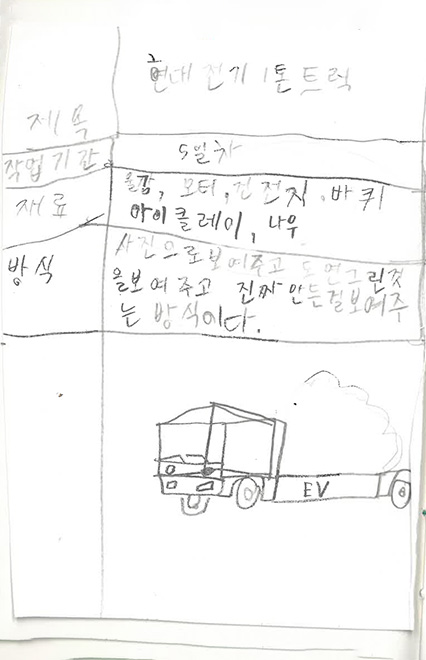 현대 전기 1톤 트럭
제목
작업기간 5일차
재료 물감, 모터, 건전지, 바퀴
아이클레이, 나우
방식 사진으로보여주고 도면그린것
을보여주고 진짜만든걸보여주
는 방식이다.
EV